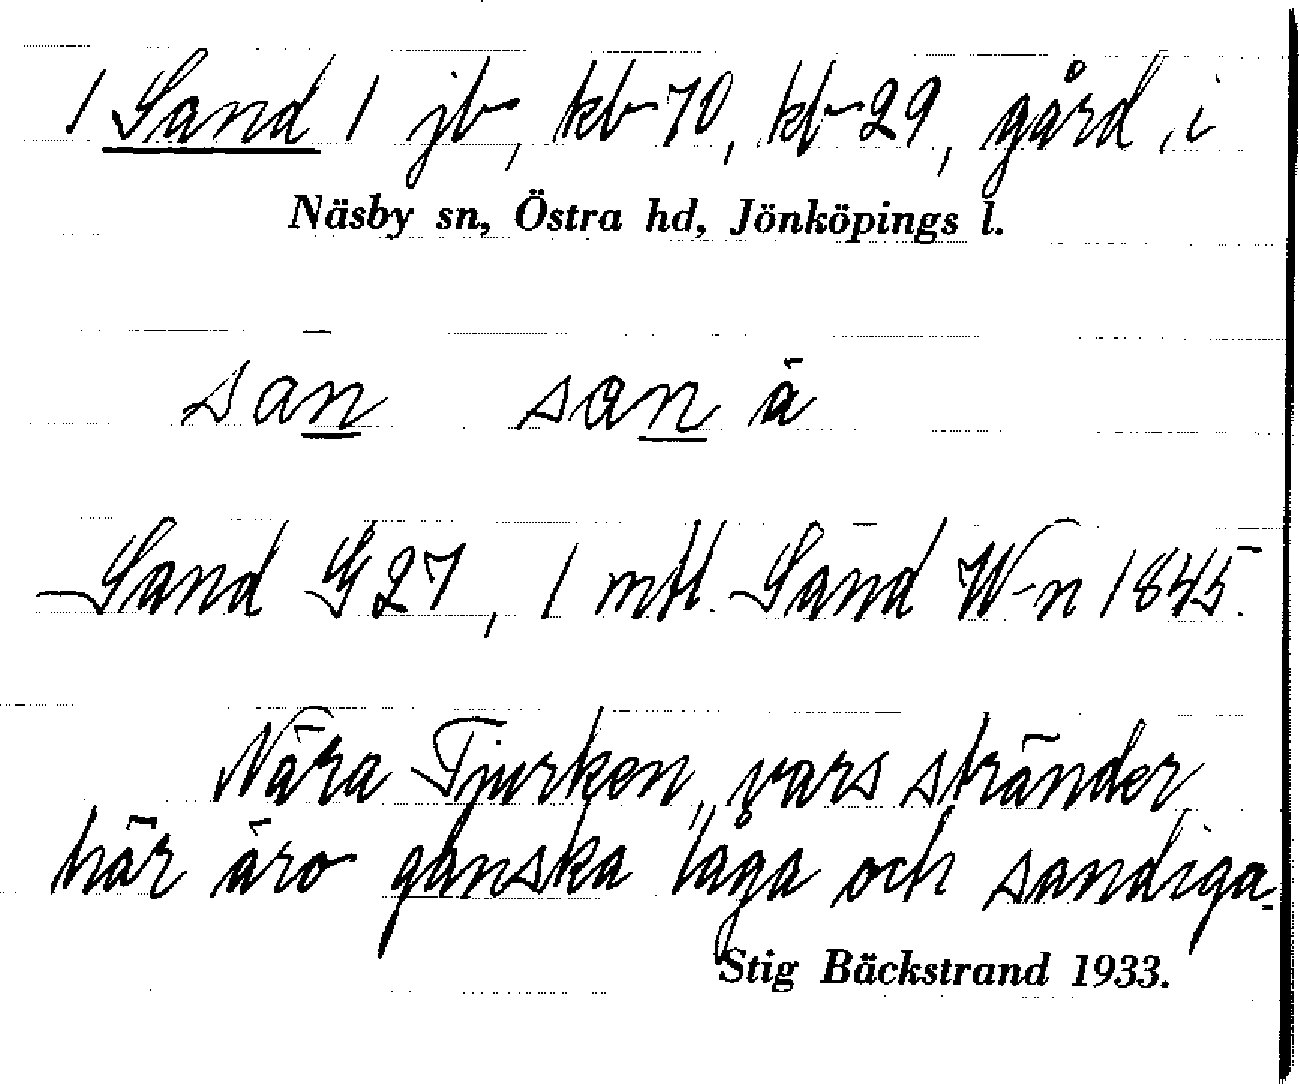 1 Sand 1 jb, kb 70, kb 29, gård, i
Näsby sn, Östra hd, Jönköpings l.
san san ä
Sand G 27, 1 mtl. Sand W-n 1845.
Nära Tjurken, vars stränder
här äro ganska låga och sandiga.
Stig Bäckstrand 1933.